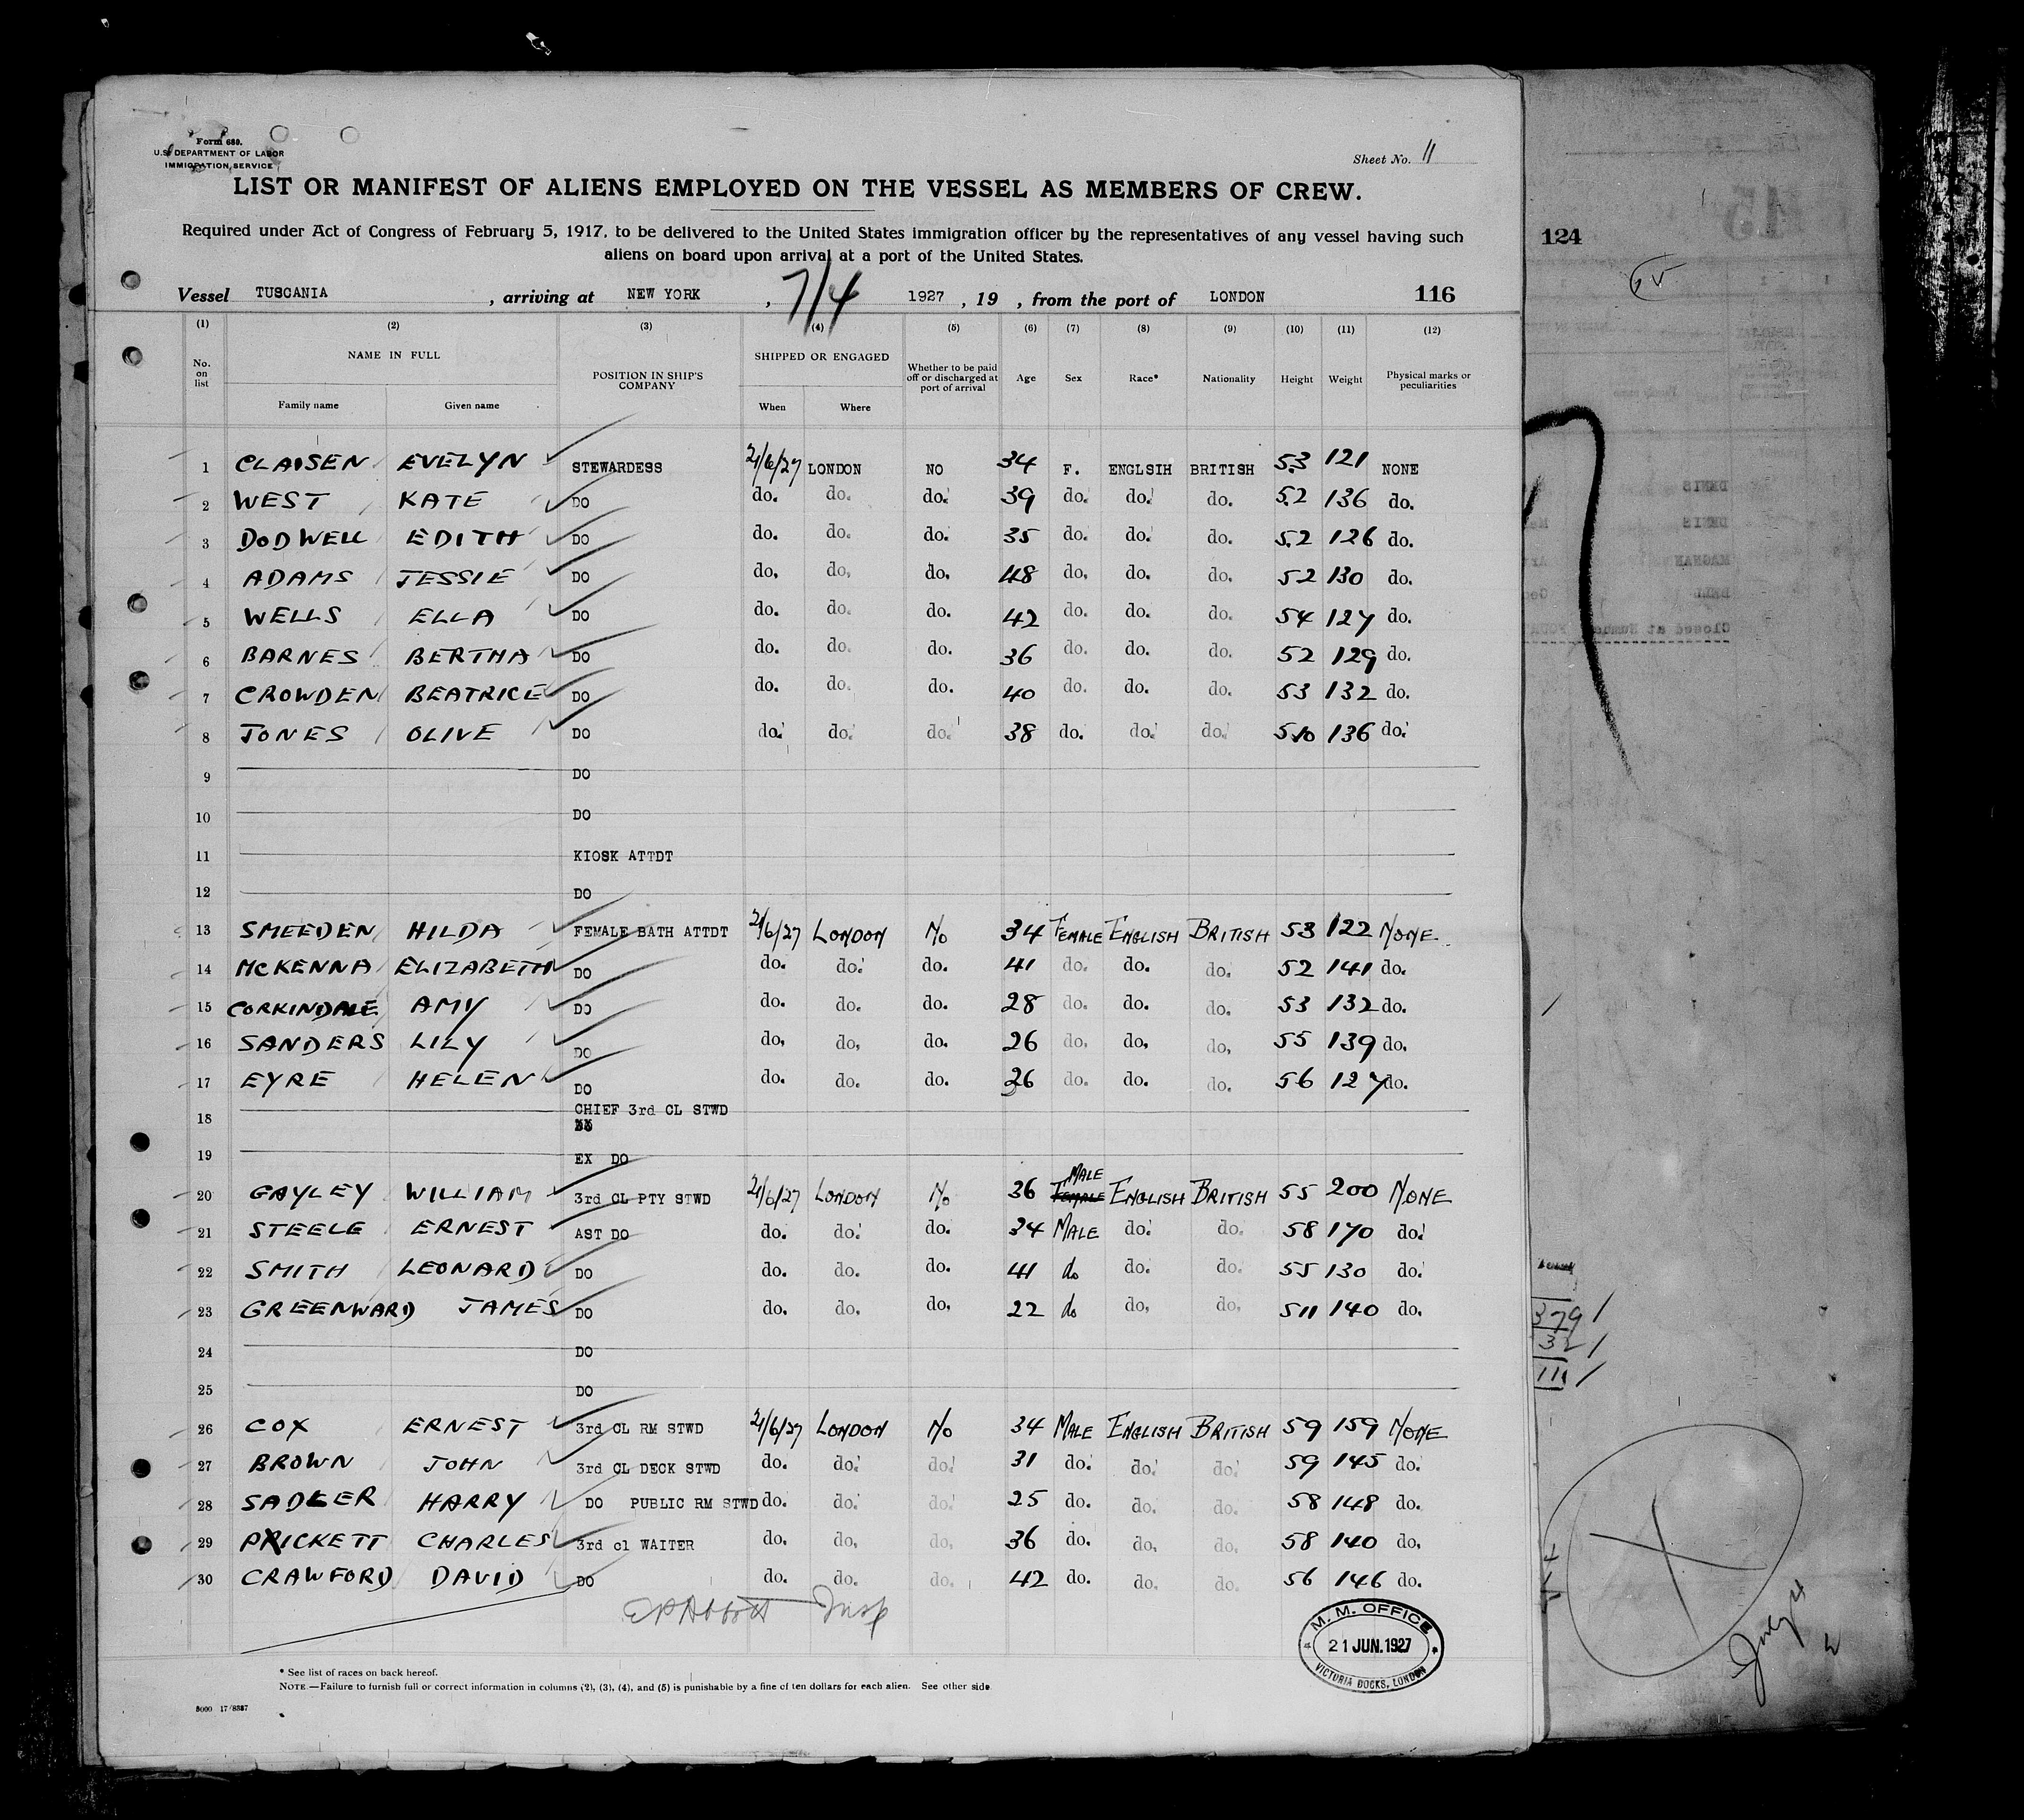 Form 689.
U.S. DEPARTMENT OF LABOR
IMMIGRATION SERVICE
Sheet No. 11
LIST OR MANIFEST OF ALIENS EMPLOYED ON THE VESSEL AS MEMBERS OF CREW.
Required under Act of Congress of February 5, 1917, to be delivered to the United States immigration officer by the representatives of any vessel having such
aliens on board upon arrival at a port of the United States.
Vessel TUSCANIA , arriving at NEW YORK , 7/4 1927 , 19 , from the port of LONDON 116
(1) (2) (3) (4) (5) (6) (7) (8) (9) (10) (11) (12)
No. on list NAME IN FULL Family name Given name POSITION IN SHIP'S COMPANY SHIPPED OR ENGAGED When Where Whether to be paid off or discharged at port of arrival Age Sex Race* Nationality Height Weight Physical marks or peculiarities
1 CLAUSEN EVELYN STEWARDESS 21/6/27 LONDON NO 34 F. ENGLSIH BRITISH 5.3 121 NONE
2 WEST KATE DO do. do. do. 39 do. do. do. 5.2 136 do.
3 DODWELL EDITH DO do. do. do. 35 do. do. do. 5.2 126 do.
4 ADAMS JESSIE DO do. do. do. 48 do. do. do. 52 130 do.
5 WELLS ELLA DO do. do. do. 42 do. do. do. 54 127 do.
6 BARNES BERTHA DO do. do. do. 36 do. do. do. 52 129 do.
7 CROWDEN BEATRICE DO do. do. do. 40 do. do. do. 53 132 do.
8 JONES OLIVE DO do. do. do. 38 do. do. do. 510 136 do.
9 DO
10 DO
11 KIOSK ATTDT
12 DO
13 SMEEDEN HILDA FEMALE BATH ATTDT 21/6/27 LONDON No 34 FEMALE ENGLISH BRITISH 53 122 NONE
14 McKENNA ELIZABETH DO do. do. do. 41 do. do. do. 52 141 do.
15 CORKINDALE AMY DO do. do. do. 28 do. do. do. 53 132 do.
16 SANDERS LILY DO do. do. do. 26 do. do. do. 55 139 do.
17 EYRE HELEN DO do. do. do. 26 do. do. do. 56 127 do.
18 CHIEF 3rd CL STWD
19 EX DO
20 GAYLEY WILLIAM 3rd CL PTY STWD 21/6/27 LONDON No 36 MALE FEMALE ENGLISH BRITISH 55 200 NONE
21 STEELE ERNEST AST DO do. do. do. 34 MALE do. do. 58 170 do.
22 SMITH LEONARD DO do. do. do. 41 do do. do. 55 130 do.
23 GREENWARD JAMES DO do. do. do. 22 do do. do. 511 140 do.
24 DO
25 DO
26 COX ERNEST 3rd CL RM STWD 21/6/27 LONDON No 34 MALE ENGLISH BRITISH 59 159 NONE
27 BROWN JOHN 3rd CL DECK STWD do. do. do. 31 do. do. do. 59 145 do.
28 SADLER HARRY DO PUBLIC RM STWD do. do. do. 25 do. do. do. 58 148 do.
29 PRICKETT CHARLES 3rd cl WAITER do. do. do. 36 do. do. do. 58 140 do.
30 CRAWFORD DAVID DO do. do. do. 42 do. do. do. 56 146 do.
E P Abbott Insp
M. M. OFFICE
21 JUN. 1927
VICTORIA DOCKS, LONDON
* See list of races on back hereof.
NOTE.—Failure to furnish full or correct information in columns (2), (3), (4), and (5) is punishable by a fine of ten dollars for each alien. See other side.
124
379
32
111
July 4